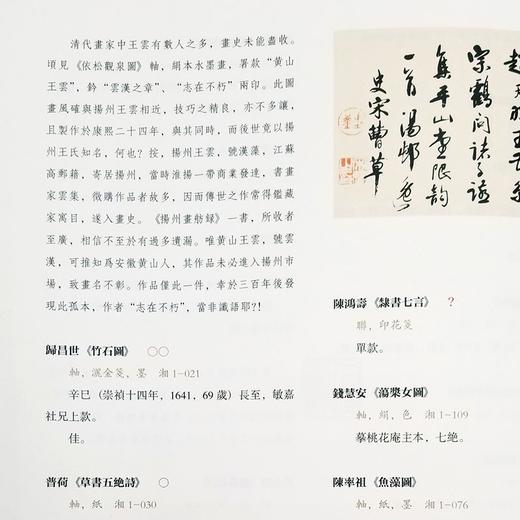 清代畫家中王雲有數人之多，畫史未能盡收。
頃見《依松觀泉圖》軸，絹本水墨畫，署款“黃山
王雲”，鈐“雲漢之章”、“志在不朽”兩印。此圖
畫風確與揚州王雲相近，技巧之精良，亦不多讓，
且製作於康熙二十四年，與其同時，而後世竟以揚
州王氏知名，何也？按，揚州王雲，號漢藻，江蘇
高郵籍，寄居揚州，當時淮揚一帶商業發達，書畫
家雲集，徵購作品者故多，因而傳世之作常得鑑藏
家寓目，遂入畫史。《揚州畫舫録》一書，所收者
至廣，相信不至於有過多遺漏。唯黃山王雲，號雲
漢，可推知爲安徽黃山人，其作品未必進入揚州市
場，致畫名不彰。作品僅此一件，幸於三百年後發
現此孤本，作者“志在不朽”，當非讖語耶？！
歸昌世《竹石圖》 ○○
軸，灑金箋，墨 湘1-021
辛巳（崇禎十四年，1641，69歲）長至，敏嘉
社兄上款。
佳。
普荷《草書五絶詩》 ○
軸，紙 湘1-030
宗鶴問諸子遊
集平山堂限韵
一首 湯邺兄
史宋曹草
陳鴻壽《隸書七言》 ？
聯，印花箋
單款。
錢慧安《蕩槳女圖》
軸，絹，色 湘1-109
摹桃花庵主本，七絶。
陳率祖《魚藻圖》
軸，紙，墨 湘1-076